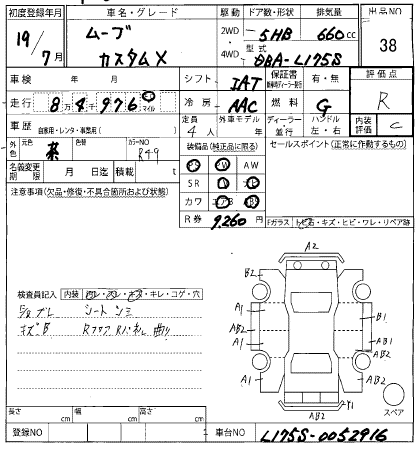 初度登録年月 車名・グレード 駆動 ドア数・形状 排気量 出品NO
19/7月 ムーブ カスタムX 2WD 4WD 5HB 660cc 38
型式 DBA-L175S
車検 年 月 シフト IAT 保証書 有・無 評価点
走行 8万4976 km マイル 冷房 AAC 燃料 G R
車歴 自家用・レンタ・事業用( ) 定員 4人 外車モデル 年 ディーラー 並行 ハンドル 左・右 内装評価 C
外色 元色 色替 カラーNO R49
装備品(純正品に限る) セールスポイント(正常に作動するもの)
名義変更期限 月 日迄 積載 t
PS PW AW
注意事項(欠品・修復・不具合箇所および状態)
SR ナビ TV
カワ エアB ABS
R券 9,260円
Fガラス トビ石・キズ・ヒビ・ワレ・リペア跡
A2
B2
検査員記入 内装 ヨゴレ・スレ・キズ・キレ・コゲ・穴
シートシミ
キズB Rフロア Rパネル 曲り
A1 B1
AB2 AB1
AB2 AB2
A1 AB2
Y1
AB2
スペア
長さ cm 幅 cm 高さ cm
登録NO 車台NO L175S-0052916